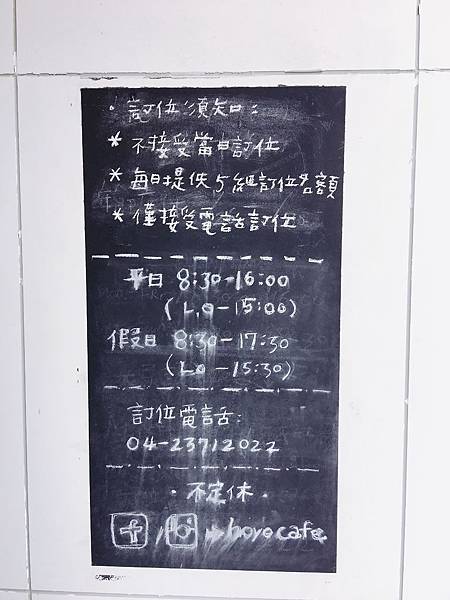 ・訂位須知：
* 不接受當日訂位
* 每日提供5組訂位名額
* 僅接受電話訂位
平日 8:30-16:00
(L.O - 15:00)
假日 8:30-17:30
(L.O - 15:30)
訂位電話:
04-23712022
・不定休・
f / → hoyo cafe